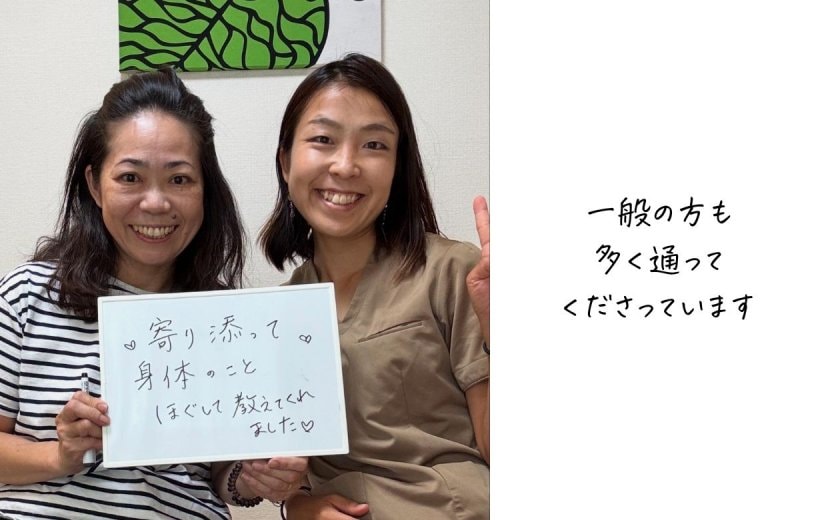 ♡寄り添って♡
身体のこと
ほぐして教えてくれ
ました♡
一般の方も
多く通って
くださっています